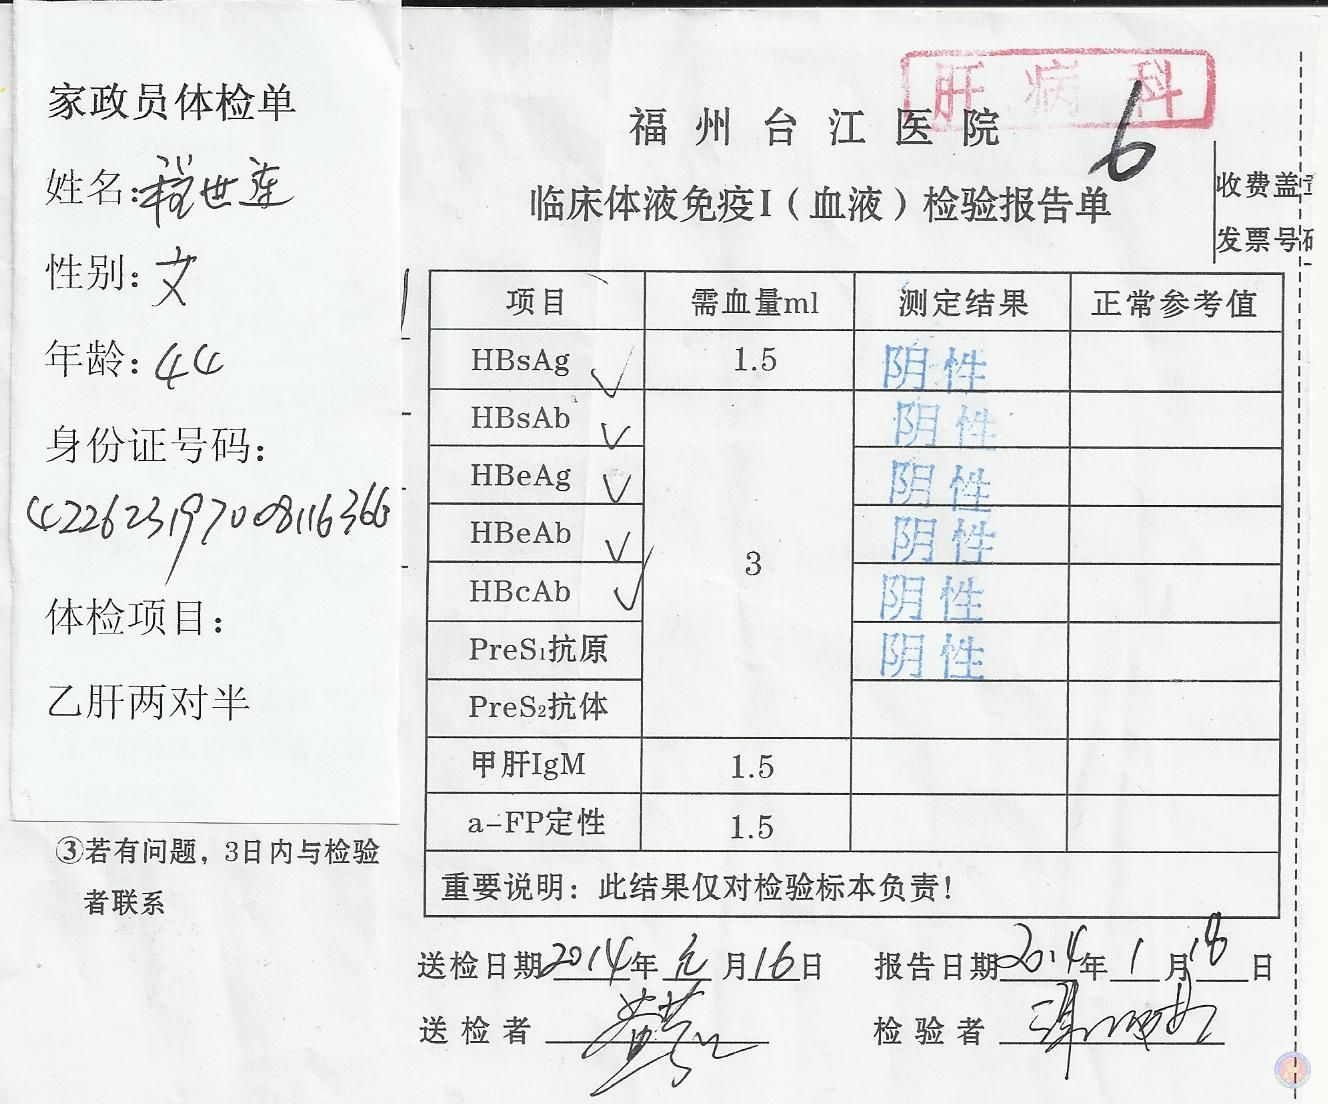 家政员体检单
姓名:程世莲
性别:女
年龄:44
身份证号码:
422623197008116366
体检项目:
乙肝两对半
③若有问题，3日内与检验
者联系
肝病科
福州台江医院
6
临床体液免疫I（血液）检验报告单
收费盖章
发票号码
项目 需血量ml 测定结果 正常参考值
HBsAg 1.5 阴性
HBsAb 阴性
HBeAg 阴性
HBeAb 3 阴性
HBcAb 阴性
PreS1抗原 阴性
PreS2抗体
甲肝IgM 1.5
a-FP定性 1.5
重要说明：此结果仅对检验标本负责！
送检日期2014年元月16日 报告日期2014年1月18日
送检者 检验者